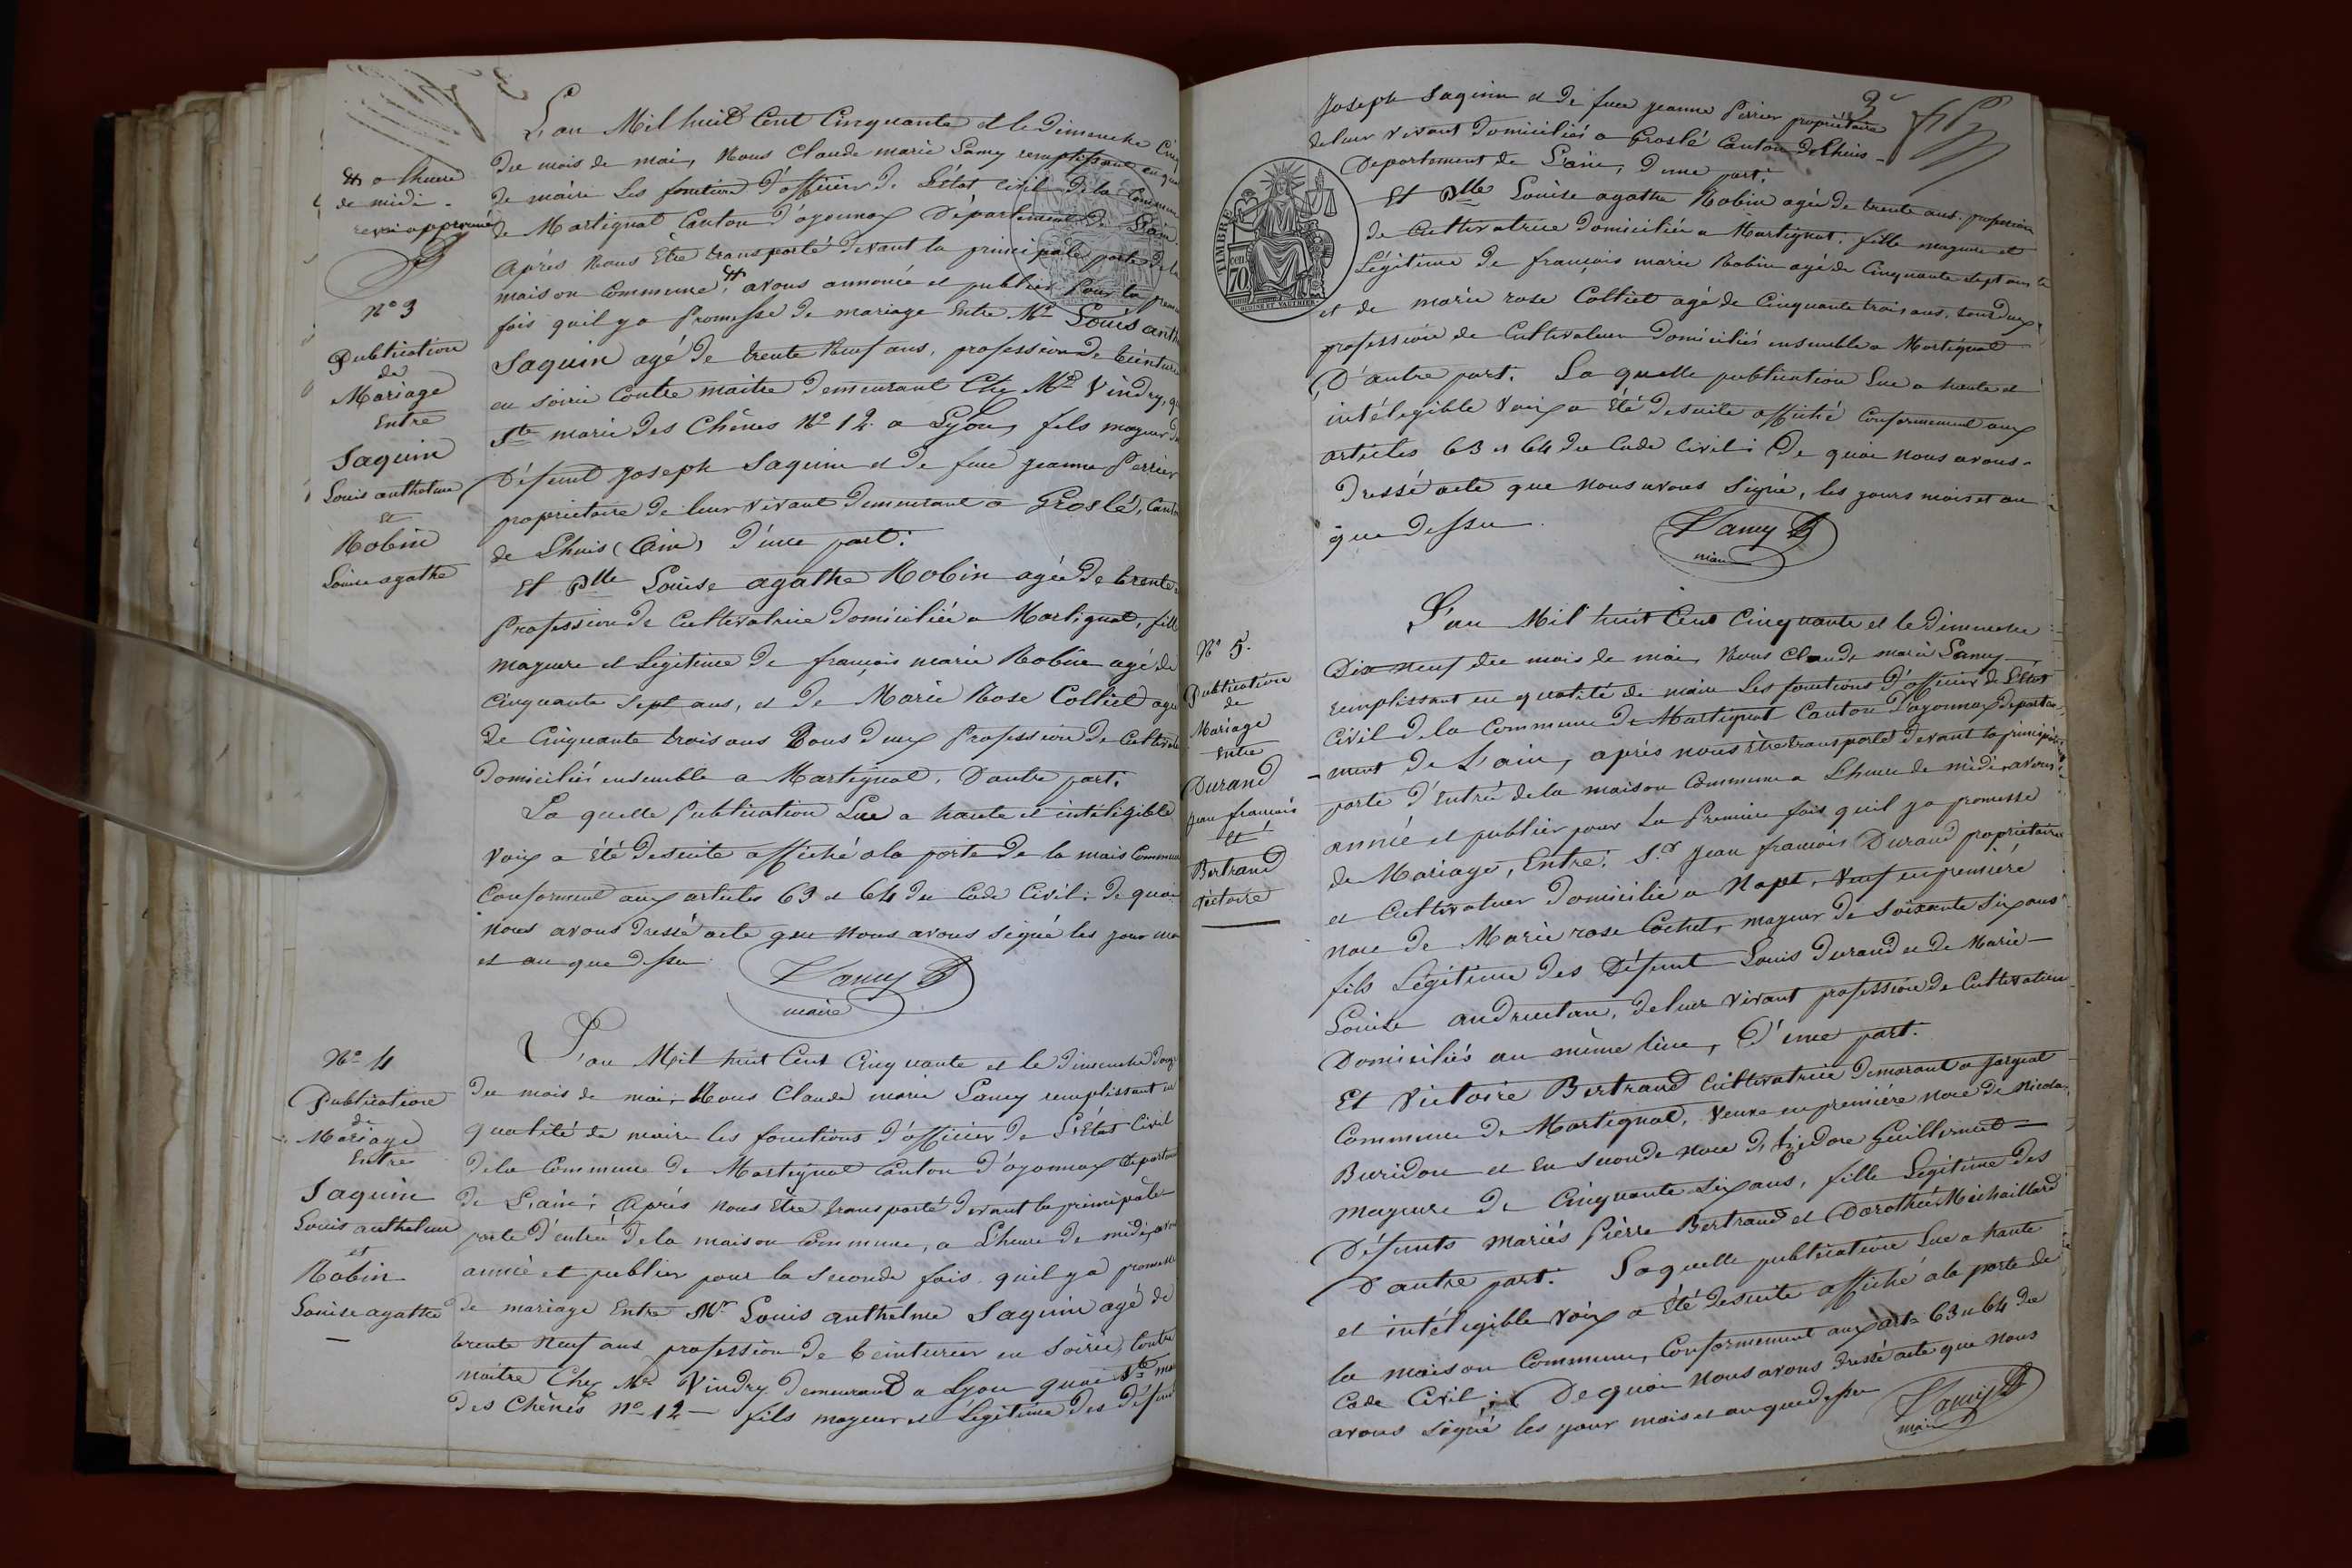 L'an Mil huit Cent Cinquante et le Dimenche Cinq
du mois de mai, Nous Claude marie Lamy remplissant en qua
de maire les fonctions d'officier de L'état Civil de la Commune
de Martignat Canton d'oyonnax Département de L'ain.
Après Nous être transporté devant la principale porte de la
maison Commune, # avons annoncé et publier pour la premie
fois quil y a Promesse de mariage Entre Mr Louis anth
Saquin agé de trente Neuf ans, profession de teinturie
en soirie Contre maitre demeurant Chez Mr Vindry, q
Ste marie des Chènes No 12 a Lyon, fils mageur de
Défunt Joseph Saquin et de feue jeanne Perrier
proprietaire de leur vivant demeurant a Groslé, Canton
de Lhuis (Ain) d'une part.
Et Dlle Louise agathe Robin agée de trente
Profession de Cultivatrice domiciliée a Martignat, fille
mageure et Légitime de françois marie Robin agé de
Cinquante Sept ans, et de Marie Rose Colliet agé
de Cinquante trois ans Tous deux Profession de Cultivat
domiciliés ensemble a Martignat, D'autre part.
La quelle Publication Lue a haute et intéligible
voix a été desuite affiché ala porte de la mais Commune
Conforment aux articles 63 et 64 du Code Civil. De quoi
Nous avons dressé acte que nous avons signé les jour moi
et an que dessu
Lamy
maire
# a Lheure
de midi.
renvoi approuvé
No 3
Publication
de
Mariage
Entre
Saquin
Louis anthelme
Et
Robin
Louise agathe
L'an Mil huit Cent Cinquante et le dimenche douze
du mois de mai, Nous Claude marie Lamy remplissant en
qualité de maire les fonctions d'officier de L'état Civil
dela Commune de Martignat Canton d'oyonnax Départem
de L'ain; Après nous être transporté devant la principale
porte d'entrée de la maison Commune, a Lheure de midi, avon
année et publier pour la Seconde fois quil y a promesse
de mariage Entre Mr Louis anthelme Saquin agé de
trente Neuf ans profession de teinturier en Soirie, Contre
maitre Chez Mr Vindry demeurant a Lyon quai Ste ma
des Chènes No 12 fils mageur et Légitime des défunt
No 4
Publication
de
Mariage
Entre
Saquin
Louis anthelme
et
Robin
Louise agathe
3e
Joseph Saquin et de feue jeanne Perrier propriétaire
deleur vivant domiciliés a Groslé Canton de Lhuis
Département de L'ain, d'une part.
Et Dlle Louise agathe Robin agée de trente ans. profession
de Cultivatrice domiciliée a Martignat. fille mageure et
Légitime de françois marie Robin agé de Cinquante Sept ans
et de marie rose Colliet agé de Cinquante trois ans, tous deux
profession de Cultivateur domiciliés ensemble a Martignat
D'autre part. La quelle publication Lue a haute et
intéligible Voix a été desuite affiché Conformement aux
articles 63 et 64 du Code Civil: De quoi nous avons
dressé acte que nous avons Signé, les jours mois et an
que dessu.
Lamy
maire
TIMBRE
70
L'an Mil huit Cent Cinquante et le dimenche
Dix neuf du mois de mai, Nous Claude marie Lamy
remplissant en qualité de maire les fonctions d'officier de L'état
Civil de la Commune de Martignat Canton d'oyonnax départe
ment de L'ain, après nous être transporté devant la principale
porte d'entrée dela maison Commune a Lheure de midi, avons
année et publier pour La Premiere fois quil ya promesse
de Mariage, Entre. Sr Jean françois Durand propriétaire
et Cultivateur domicilié a Napt, Veuf en première
noce de Marie rose Cochet, mageur de Soixante Six ans
fils Légitime des Défunt Louis durand et de Marie
Louise andrutan, deleur vivant profession de Cultivateur
Domiciliés au même lieu, D'une part.
Et Victoire Bertrand Cultivatrice demorant a jargeat
Commune de Martignat, Veuve en première noce de Nicolas
Buridon et En Seconde noce de Izidore Guillermet
mageure de Cinquante Six ans, fille Légitime des
Défunts Mariés Pièrre Bertrand et Dorothée Michaillard
D'autre part. Laquelle publication Lue a haute
et intéligible Voix a été desuite affiché ala porte de
la maison Commune, Conformement aux art. 63 et 64 du
Code Civil; De quoi nous avons dressé acte que nous
avons signé les jour mois et an que dessu
Lamy
maire
No 5.
Publication
de
Mariage
Entre
Durand
Jean francois
Et
Bertrand
Victoire